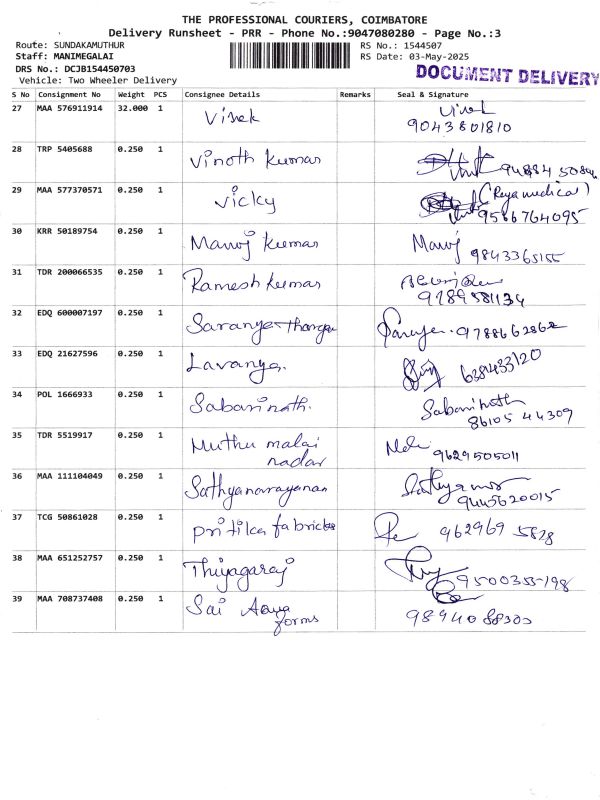 THE PROFESSIONAL COURIERS, COIMBATORE
Delivery Runsheet - PRR - Phone No.:9047080280 - Page No.:3
Route: SUNDAKAMUTHUR RS No.: 1544507
Staff: MANIMEGALAI RS Date: 03-May-2025
DRS No.: DCJB154450703 DOCUMENT DELIVERY
Vehicle: Two Wheeler Delivery
S No Consignment No Weight PCS Consignee Details Remarks Seal & Signature
27 MAA 576911914 32.000 1 Vivek Vivek
9043801810
28 TRP 5405688 0.250 1 Vinoth Kumar
29 MAA 577370571 0.250 1 Vicky (Reya medical)
9566764095
30 KRR 50189754 0.250 1 Manoj Kumar Manoj 9843365155
31 TDR 200066535 0.250 1 Ramesh Kumar
9789581134
32 EDQ 600007197 0.250 1 Saranya 9788662862
33 EDQ 21627596 0.250 1 Lavanya.
34 POL 1666933 0.250 1 Sabarinath. Sabarinath
86105 44309
35 TDR 5519917 0.250 1 Muthu malai
nadar 9629505011
36 MAA 111104049 0.250 1 Sathyanarayanan
9445620015
37 TCG 50861028 0.250 1 962969 5828
38 MAA 651252757 0.250 1 Thiyagaraj 9500355198
39 MAA 708737408 0.250 1 Sai
forms 98940 88303